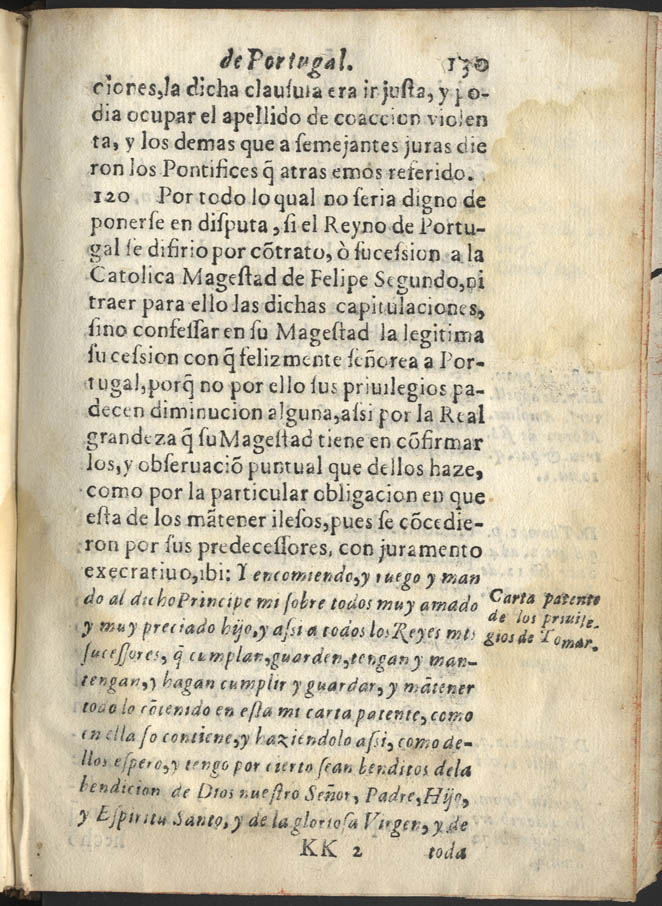 de Portugal. 130
ciones, la dicha clauſula era injuſta, y po-
dia ocupar el apellido de coaccion violen
ta, y los demas que a ſemejantes juras die
ron los Pontifices q̃ atras emos referido.
120 Por todo lo qual no ſeria digno de
ponerſe en diſputa, ſi el Reyno de Portu-
gal ſe difirio por cõtrato, ò ſuceſsion a la
Catolica Mageſtad de Felipe Segundo, ni
traer para ello las dichas capitulaciones,
ſino confeſſar en ſu Mageſtad la legitima
ſuceſsion con q̃ felizmente ſeñorea a Por-
tugal, porq̃ no por ello ſus priuilegios pa-
decen diminucion alguna, aſsi por la Real
grandeza q̃ ſu Mageſtad tiene en cõfirmar
los, y obſeruaciõ puntual que dellos haze,
como por la particular obligacion en que
eſta de los mãtener ileſos, pues ſe cõcedie-
ron por ſus predeceſſores, con juramento
execratiuo, ibi: Y encomiendo, y ruego y man
do al dicho Principe mi ſobre todos muy amado
y muy preciado hijo, y aſsi a todos los Reyes mis
ſuceſſores, q̃ cumplan, guarden, tengan y man-
tengan, y hagan cumplir y guardar, y mãtener
todo lo cõtenido en eſta mi carta patente, como
en ella ſo contiene, y haziendolo aſsi, como de-
llos eſpero, y tengo por cierto ſean benditos dela
bendicion de Dios nueſtro Señor, Padre, Hijo,
y Eſpiritu Santo, y de la glorioſa Virgen, y de
KK 2 toda
Carta patente
de los priuile-
gios de Tomar.